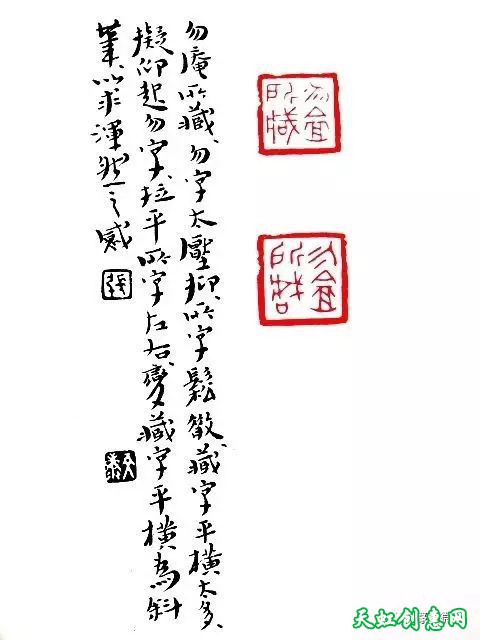 勿庵所藏勿字太壓抑所字鬆散藏字平橫太多
擬仰起勿字拉平所字左右變藏字平橫為斜
業以求渾然一之感
張
勿庵所藏
勿庵所藏
天虹创意网